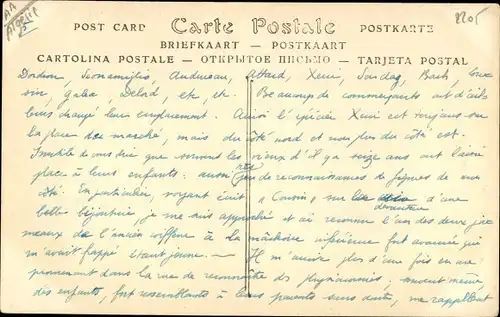 AA
Algérie
5
2205
POST CARD Carte Postale POSTKARTE
BRIEFKAART — POSTKAART
CARTOLINA POSTALE — ОТКРЫТОЕ ПИСЬМО — TARJETA POSTAL
Attard, Xeui, Sardag,
Galea, Delod, etc, etc. Beaucoup de commerçants ont d'ails
leurs changé leur emplacement. Ainsi l'épicier Xeui est toujours sur
la place du marché, mais du côté nord et non plus du côté est.
Inutile de vous dire que souvent les vieux d'il y a seize ans ont laissé
place à leurs enfants: aussi peu de reconnaissances de figures de mon
côté. En particulier, voyant écrit "Cousin" sur la devanture d'une
belle bijouterie, je me suis approché et ai reconnu l'un des deux jumeaux
de l'ancien coiffeur à la mâchoire inférieure fort avancée qui
m'avait frappé étant jeune. — Il m'arrive plus d'une fois en me
promenant dans la rue de reconnaître des physionomies; souvent même,
des enfants, fort ressemblants à leurs parents sans doute, me rappellent